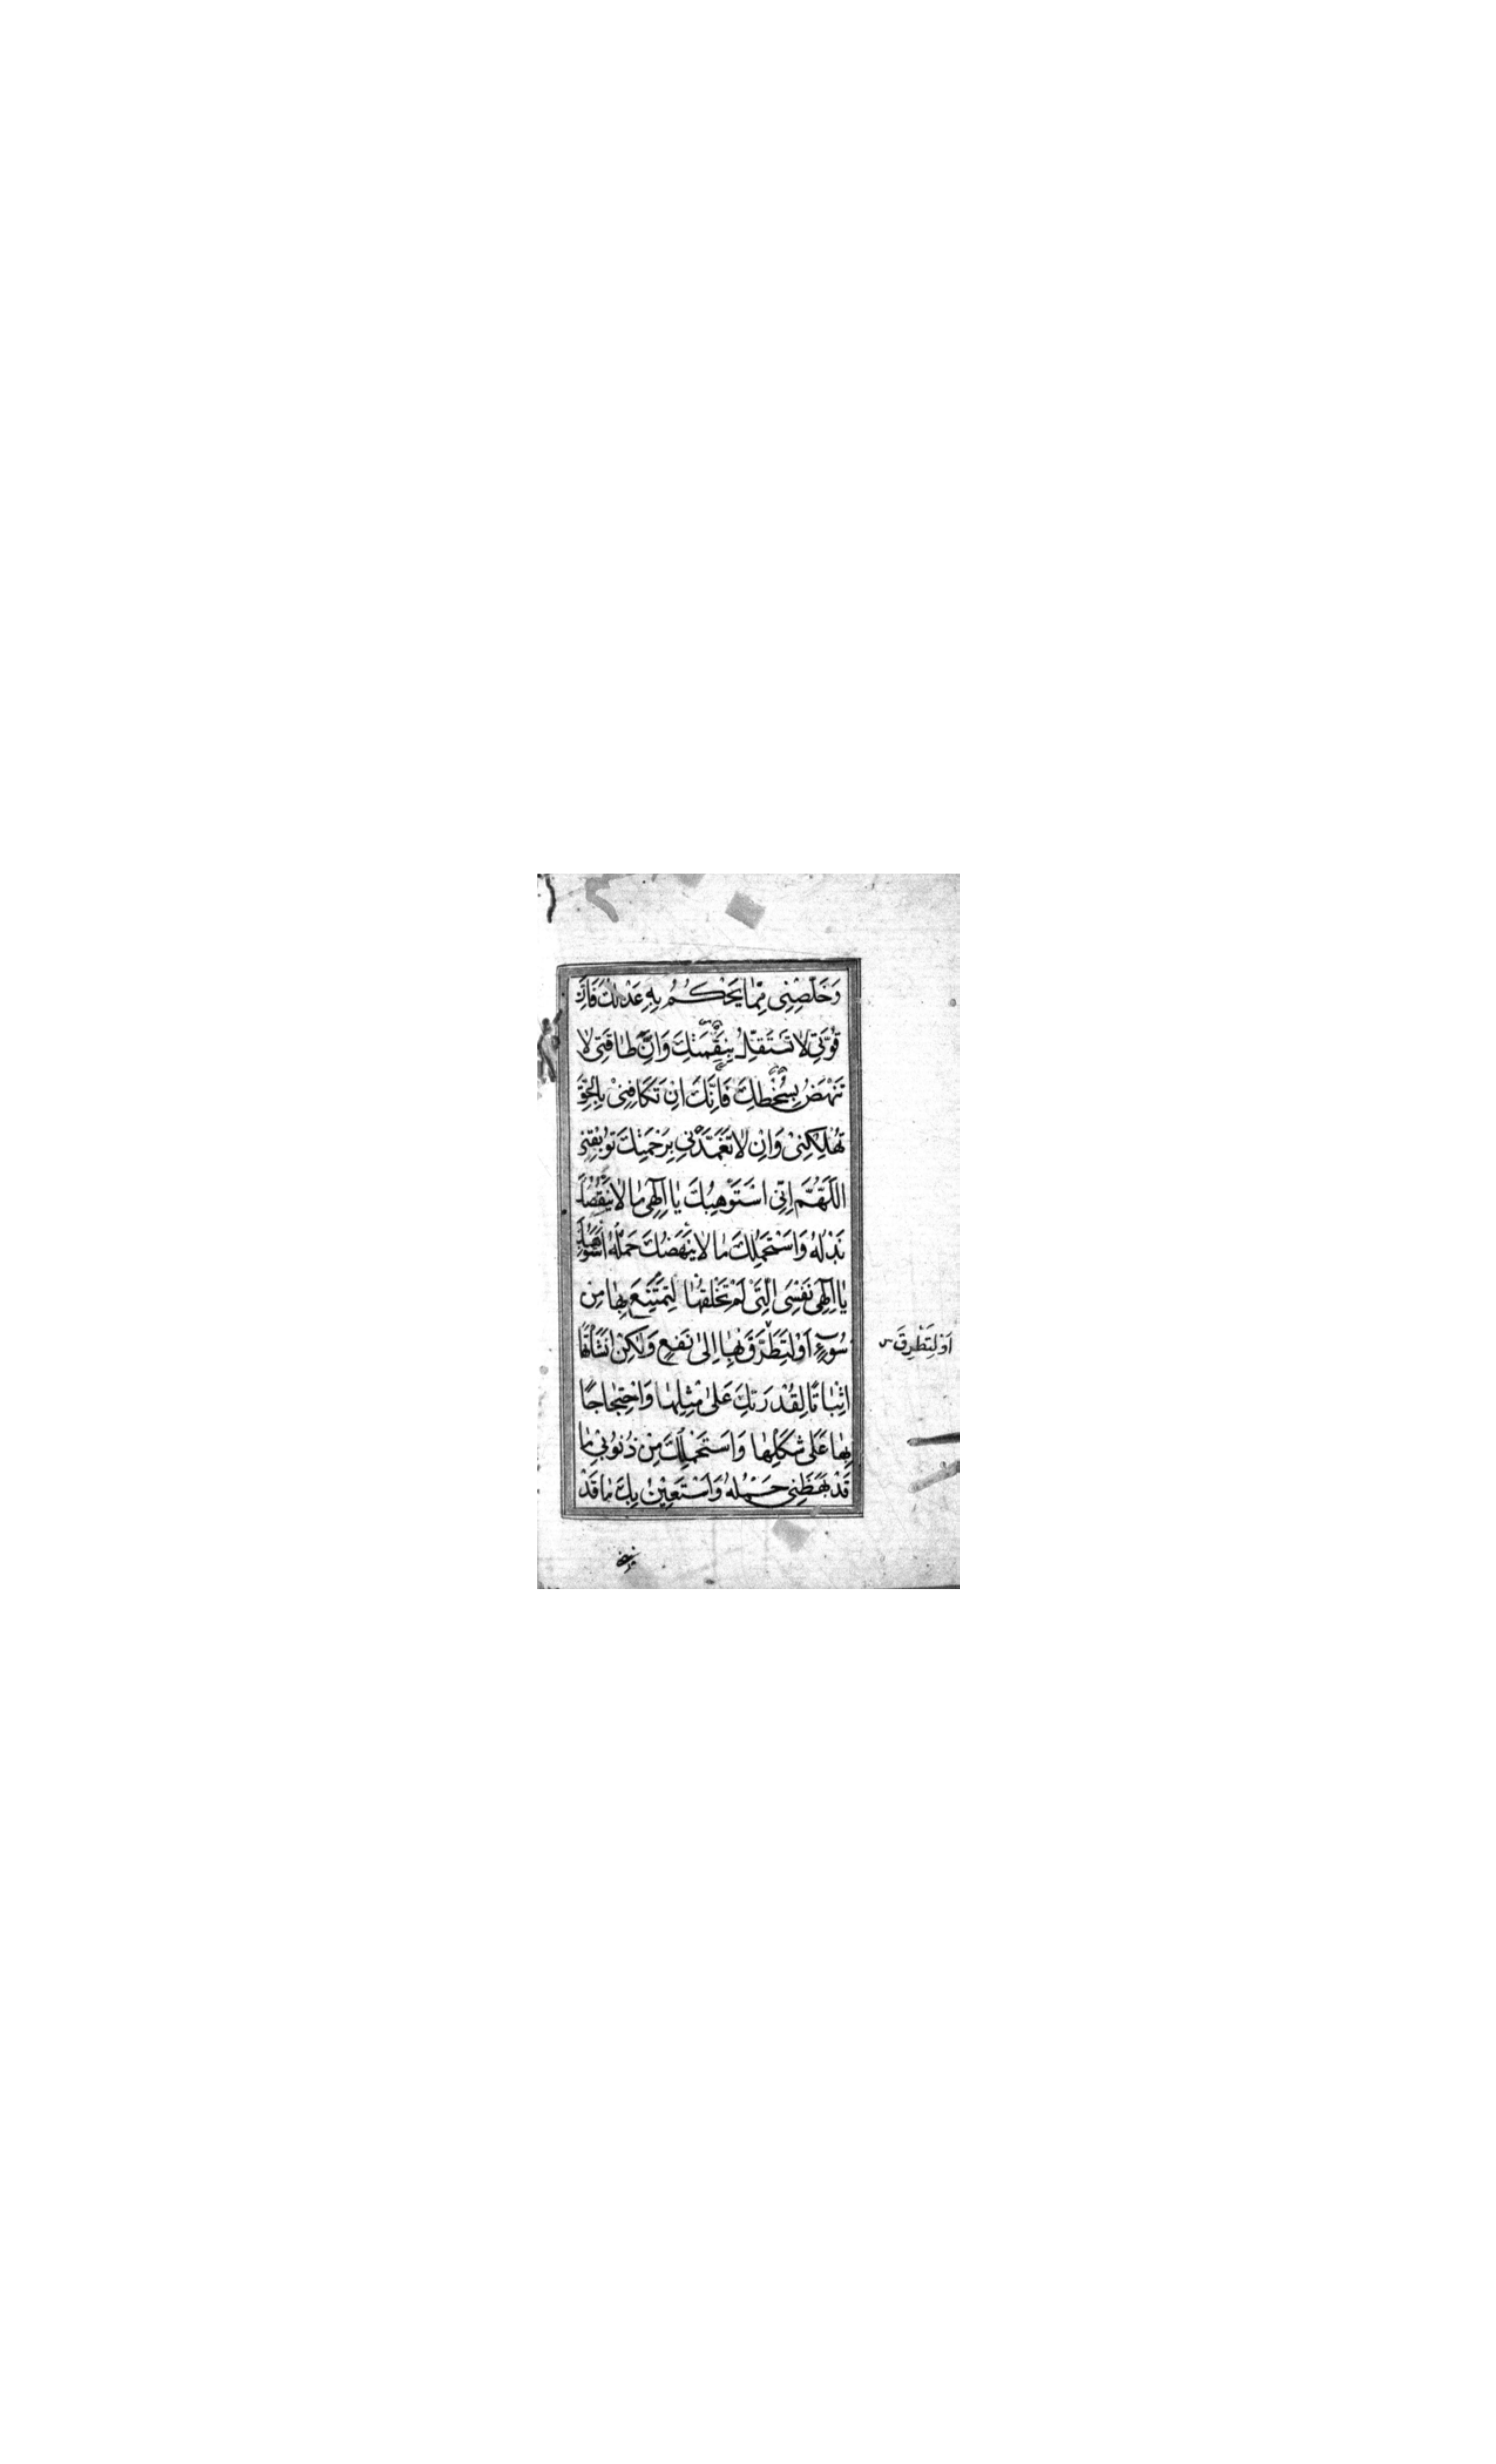 وَخَلِّصْنِی مِمَّا یَحْکُمُ بِهِ عَدْلُكَ فَاِنَّ
قُوَّتِی لَا تَسْتَقِلُّ بِنِقْمَتِكَ وَاِنَّ طَاقَتِی لَا
تَنْهَضُ بِسُخْطِكَ فَاِنَّكَ اِنْ تُکَافِنِیْ بِالْحَقِّ
تُهْلِکْنِیْ وَاِنْ لَا تَغَمَّدْنِی بِرَحْمَتِكَ تُوْبِقْنِیْ
اَللّٰهُمَّ اِنِّی اَسْتَوْهِبُكَ یَا اِلٰهِی مَا لَا یَنْقُصُكَ
بَذْلُهُ وَاَسْتَحْمِلُكَ مَا لَا یَنْهَضُكَ حَمْلُهُ اَسْتَوْهِبُكَ
یَا اِلٰهِی نَفْسِیَ الَّتِیْ لَمْ تَخْلُقْهَا لِتَمْتَنِعَ بِهَا مِنْ
سُوْءٍ اَوْ لِتَطَرَّقَ بِهَا اِلیٰ نَفْعٍ وَلٰکِنْ اَنْشَأْتَهَا
اِثْبَاتًا لِقُدْرَتِكَ عَلیٰ مِثْلِهَا وَاحْتِجَاجًا
بِهَا عَلیٰ شَکْلِهَا وَاَسْتَحْمِلُكَ مِنْ ذُنُوْبِیْ مَا
قَدْ بَهَظَنِی حَمْلُهُ وَاَسْتَعِیْنُ بِكَ مَا قَدْ
اَوْ لِتَطْرِقَ